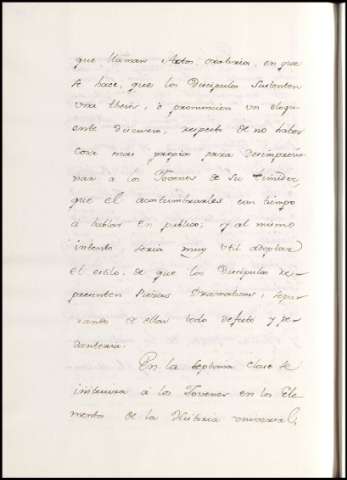 que llaman Actos oratorios, en que
se hace, que los Discipulos Sustenten
una thesis, ò pronuncien un eloqu-
ente discurso, respecto de no haber
cosa mas propia para desimpresio-
nar a los Jovenes de su timidez,
que el acostumbrarles con tiempo
à hablar en publico; y al mismo
intento seria muy util adoptar
el estilo, de que los Discipulos re-
presenten Piezas Dramaticas, sepa-
rando de ellas todo defecto y pe-
danteria.
En la septima clase se
instruira à los Jovenes en los Ele-
mentos de la Historia universal,